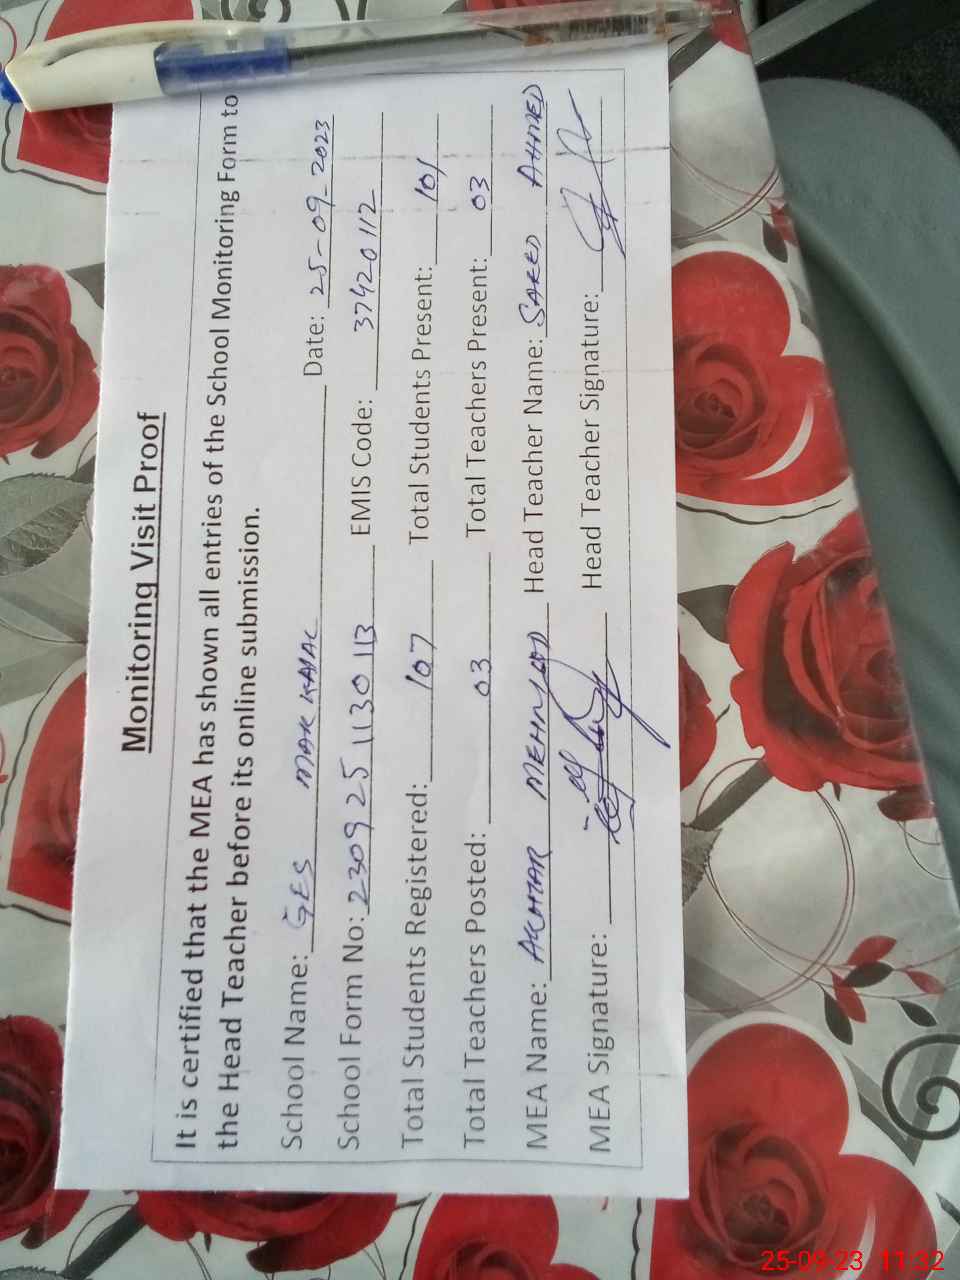 Monitoring Visit Proof
It is certified that the MEA has shown all entries of the School Monitoring Form to
the Head Teacher before its online submission.
School Name: GES Date: 25-09-2023
School Form No: 23092511301 EMIS Code: 37420112
Total Students Registered: 107 Total Students Present: 101
Total Teachers Posted: 03 Total Teachers Present: 03
MEA Name: AKHTAR MEHMOOD Head Teacher Name: SAEED AHMED
MEA Signature: Head Teacher Signature:
25-09-23 11:32